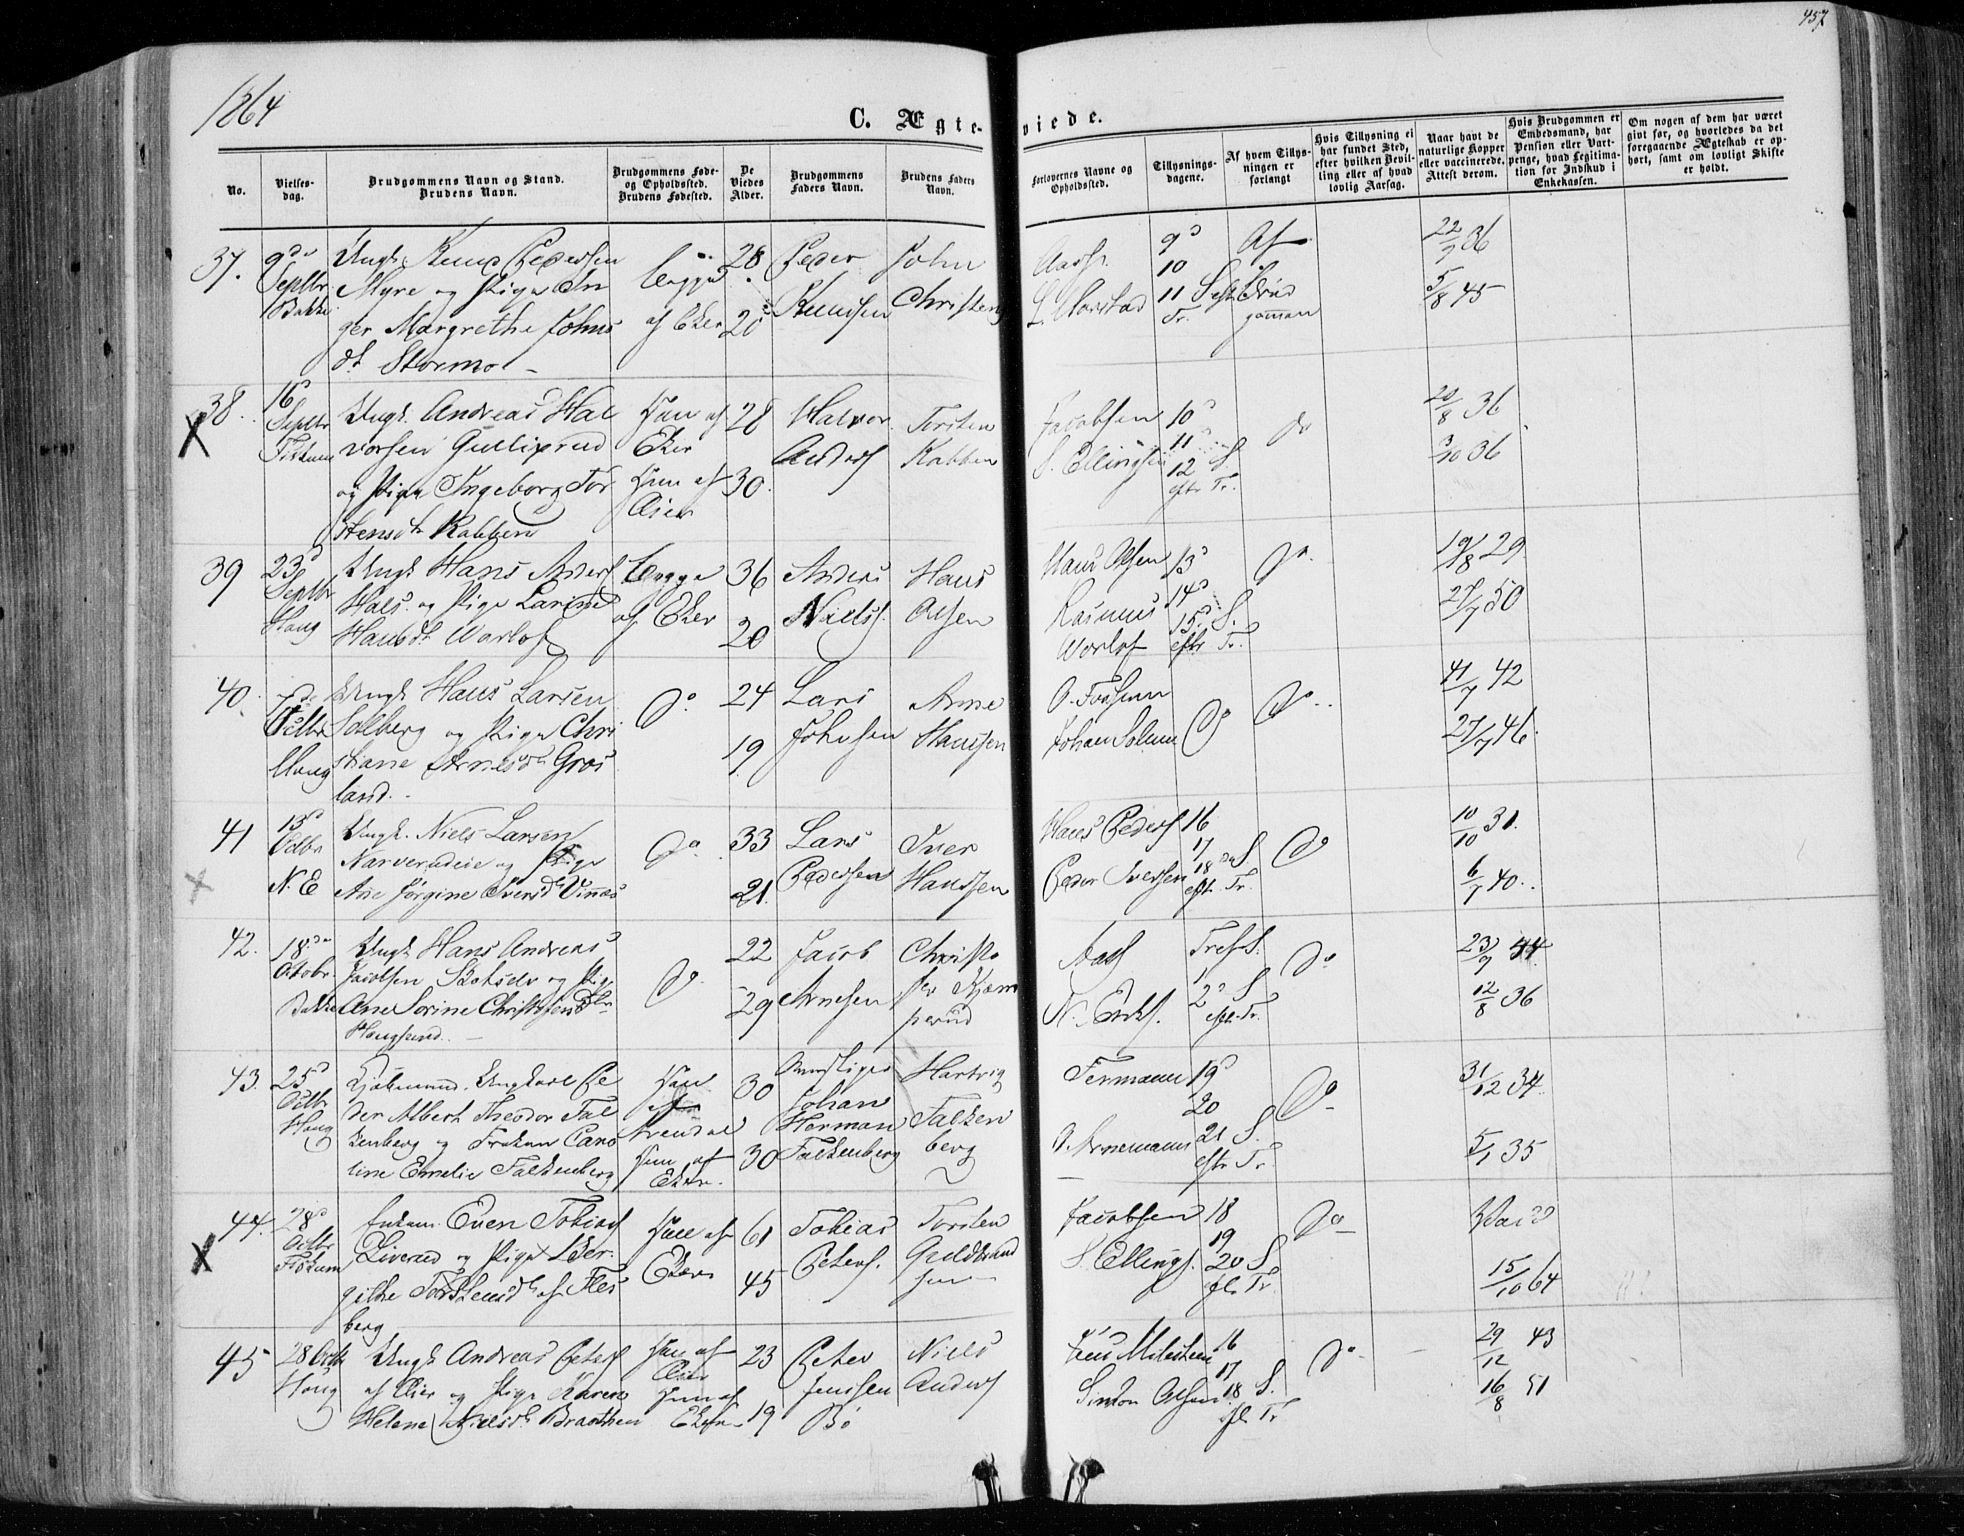 457
1864
C. Ægte-
viede.
No.
Vielses-
dag.
Brudgommens Navn og Stand.
Brudens Navn.
Brudgommens Føde-
og Opholdssted.
Brudens Fødested.
De
Viedes
Alder.
Brudgommens
Faders Navn.
Brudens Faders
Navn.
Forlovernes Navne og
Opholdssted.
Tillysnings-
dagene.
Af hvem Tillys-
ningen er
forlangt
Hvis Tillysning ei
har fundet Sted,
efter hvilken Bevil-
ling eller af hvad
lovlig Aarsag.
Naar havt de
naturlige Kopper
eller vaccinerede.
Attest derom.
Hvis Brudgommen er
Embedsmand, har
Pension eller Vart-
penge, hvad Legitima-
tion for Indskud i
Enkekassen.
Om nogen af dem har været
givt før, og hvorledes da det
foregaaende Ægteskab er op-
hørt, samt om lovligt Skifte
er holdt.
37.
9de
Septbr
Bakke
Ungk. Knud Pedersen
Myre og Pige In
ger Margrethe Johns
dt Stormo
begge
af Eker
28
20
Peder
Knudsen
John
Christens
L. Harstad
9d
10
11 S eft
Tr.
Af
Brud
gommen
22/7 36
5/8 45
38.
X
16d
Septbr
Fiskum
Ungk. Andreas Hal
vorsen Gulliksrud
og Pige Ingeborg Tor
stensdt Kobben
Han af
Eker
Hun af
28
30
Halvor
Anders
Torsten
Kobben
Jacobsen
S. Ellingsen
10d
11
12 S.
eftr Tr.
do
20/8 36
3/10 36
39
23d
Septbr
Haug
Ungk Hans Anders
Hals og Pige Larine
Hansdt Varlo
begge
af Eker
36
20
Anders
Nielss.
Hans
Olsen
Hans Olsen
Rasmus
13d
14d
15d S.
eftr Tr.
Do
19/8 29
27/7 50
40.
7de
Octbr
Haug
Ungk Hans Larsen
Solberg og Pige Chri
stiane Arnesdt Gros
land.
Do
24
19
Lars
Johnsen
Arne
Hansen
O. Fossum
Johan Solum
Do
Do
11/7 42
27/7 46.
41
13d
Octbr
N. E
Ungk. Niels Larsen
Narverudeie og Pige
Ane Jørgine Iversdt Vinnes
Do
33
21.
Lars
Pedersen
Iver
Hanssen
Hans Peders
Peder Iversen
16
17
18 S.
eft. Tr.
Do
10/10 31.
6/7 40.
42.
18de
Octobr.
Bakke
Ungk Hans Andreas
Jacobsen Skotselv og Pige
Ane Sorine Christofersdtr
Hougsund
Do
22
29
Jacob
Arnesen
Christo
fer Kjem
perud
Aas
N. Ericks.
1
2d S
eft. Tr.
Do
23/7 44
12/8 36
43.
25d
Octbr
Haug
Kjøbmand, Ungkarl Pe
der Albert Theodor Fal
kenberg og Frøken Caro
line Emelie Falkenberg
Han
af
Arendal
Hun af
Eker
30
30
Johan
Herman
Falkenberg
Hartvig
Falken
berg
Fermann
O. Arnemann
19d
20
21 S.
eftr Tr.
Do
31/12 34
5/1 35
44.
X
28d
Octbr
Fiskum
Enkem. Even Tobias
Liverud og Pige Ber
githe Torstensdt af Fles
berg
Han af
Eker
61
45
Tobias
Peters.
Torsten
Guldbrand
sen
Jacobsen
S. Ellings.
18
19
20 S
eft. Tr.
Do
15/10 64
45
28 Octb
Haug
Ungk Andreas Peters
og Pige Karen
Helene Nielsdt Braathen
Han af
Hun af
Eker
23
19
Peter
Jenssen
Bø
Niels
Anders
Simon Olsen
16
17
18 S.
eft. Tr
Do
29/12 43
16/8 51